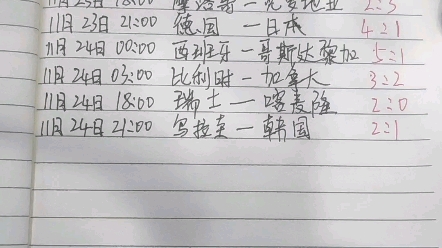 11月23日 18:00 摩洛哥一克罗地亚 2:3
11月23日 21:00 德国 一日本 4:1
11月24日 00:00 西班牙一哥斯达黎加 5:1
11月24日 03:00 比利时一加拿大 3:2
11月24日 18:00 瑞士一喀麦隆 2:0
11月24日 21:00 乌拉圭一韩国 2:1